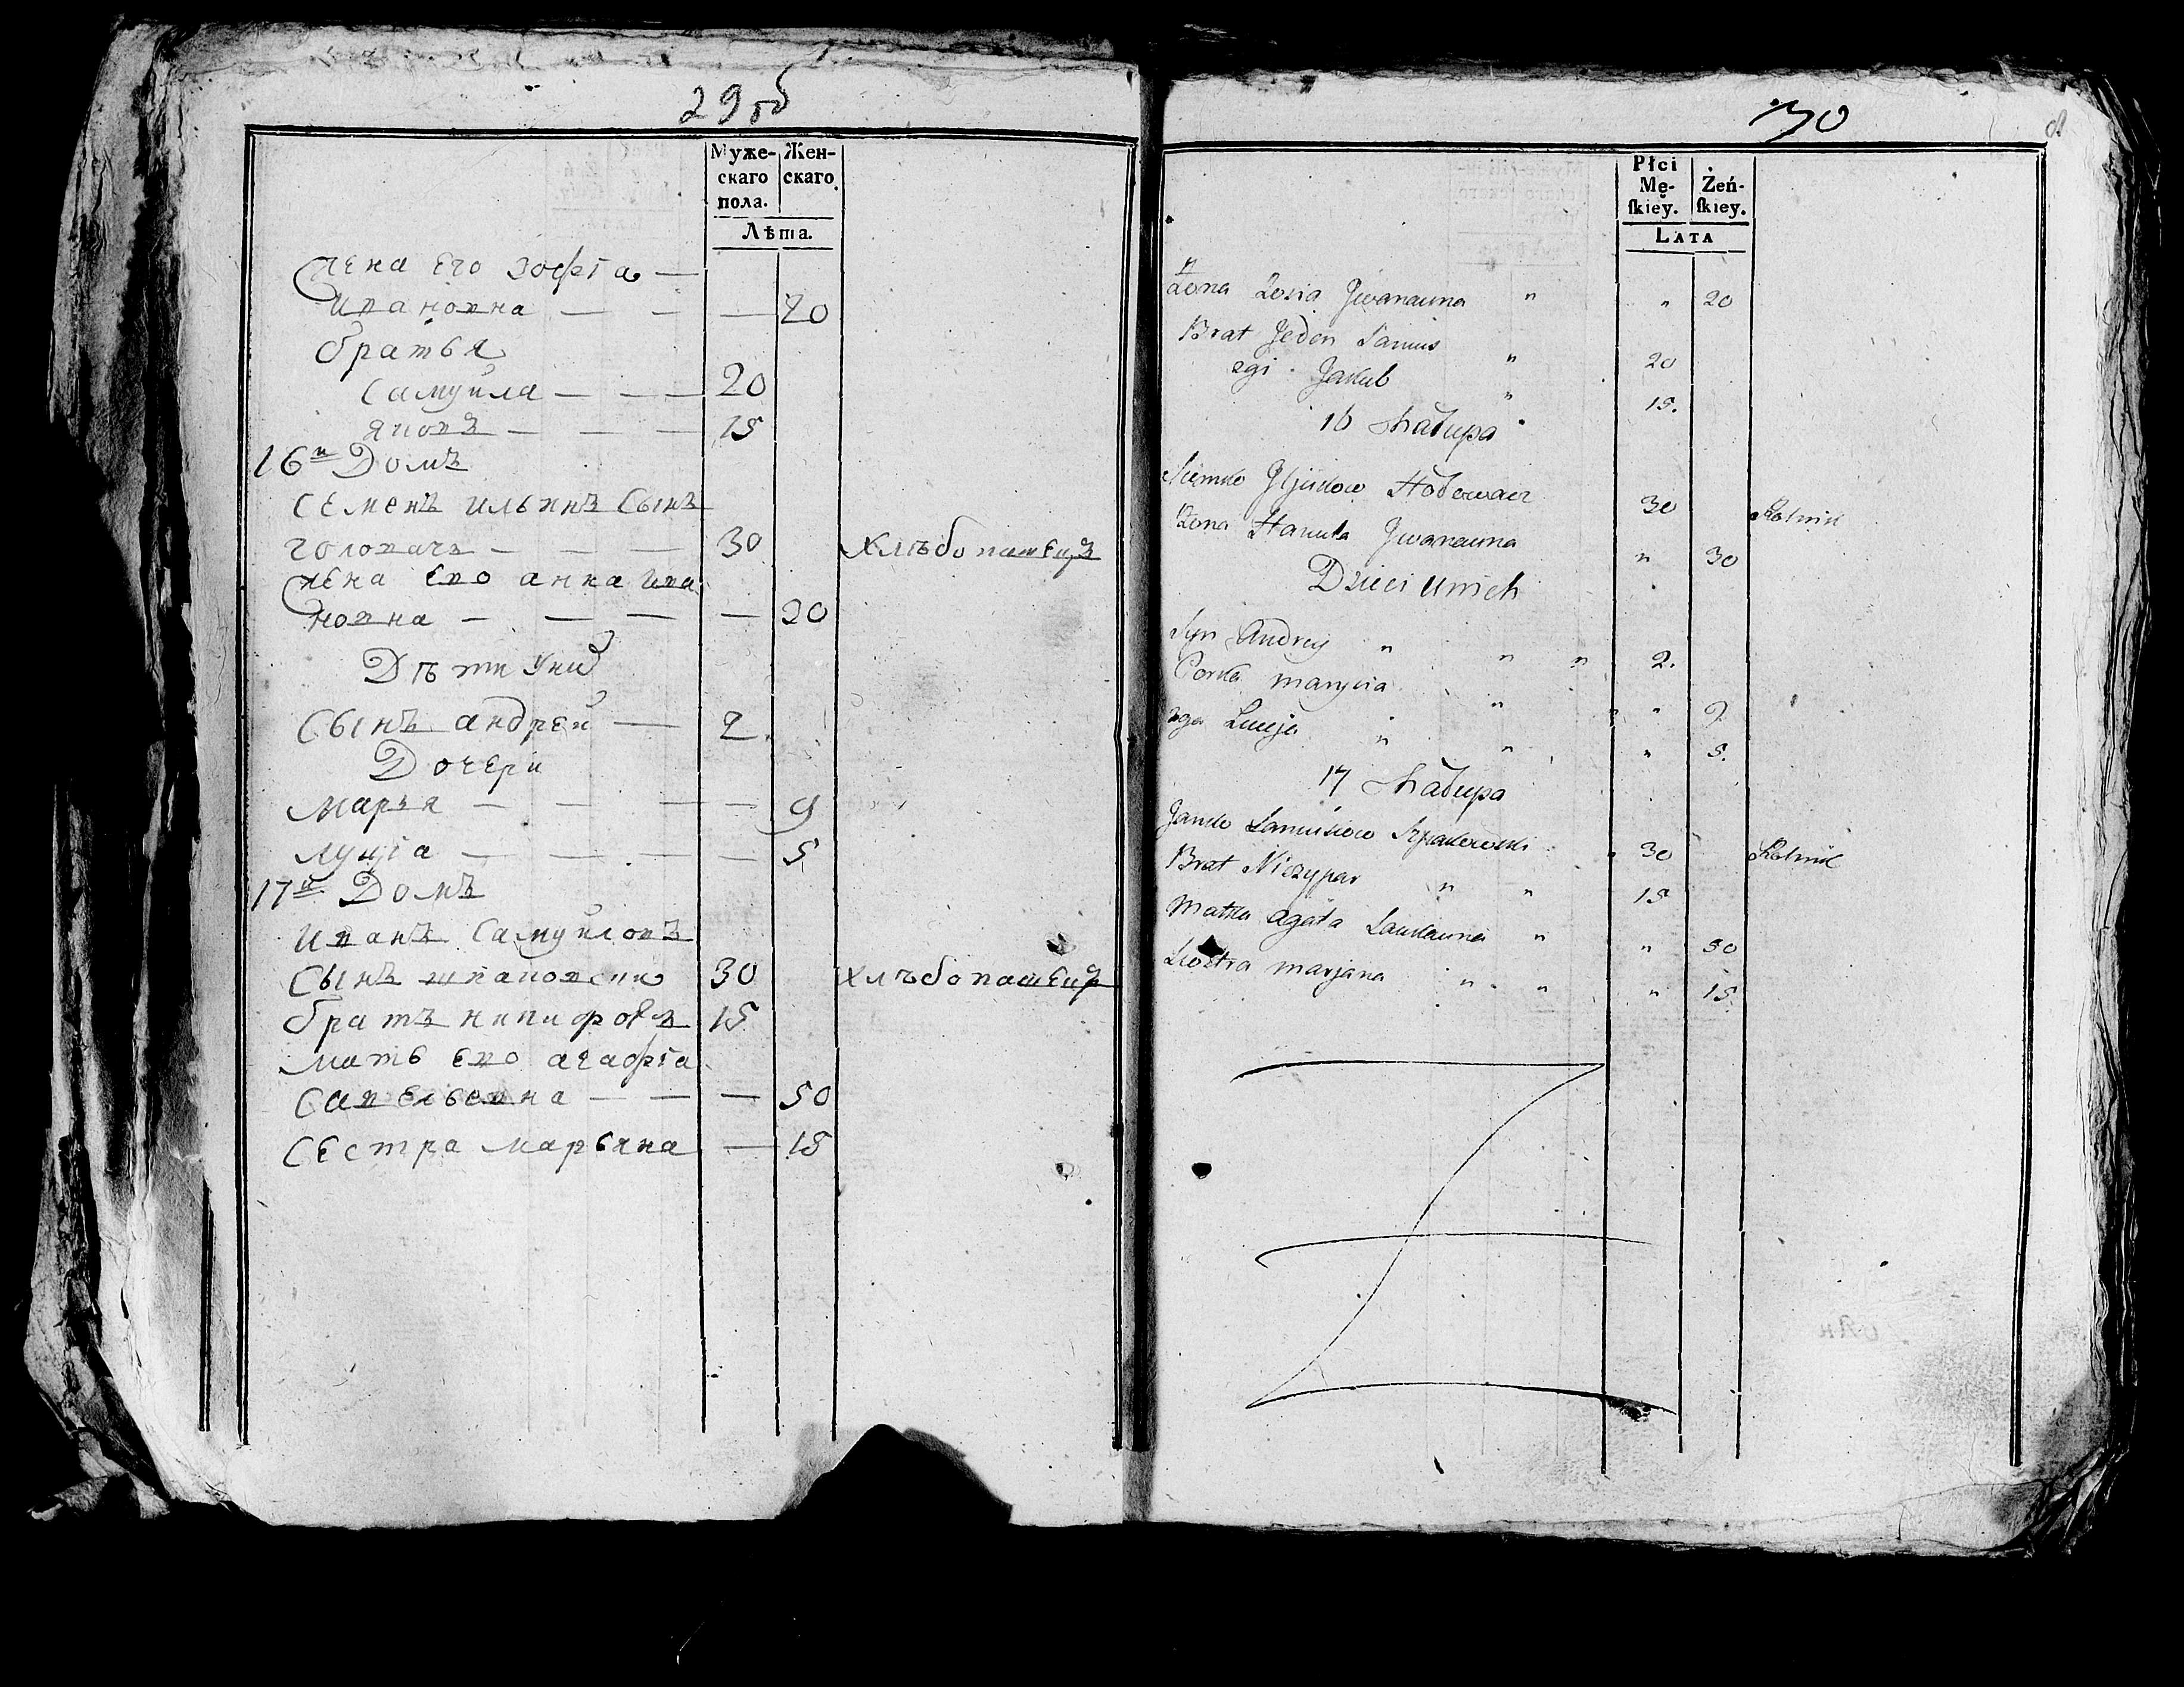 29 об
Муже- Жен-
скаго скаго.
пола.
Лѣта.
Жена его Зофіа —
Ивановна — — — 20
братья
Самуила — — — 20
Яковъ — — — 15
16й Домъ
Семенъ Ильинъ Сынъ
Головачъ — — — 30 Хлѣбопашецъ
Жена ево анна Ива
новна — — — — 20
Дѣти Уних
Сынъ андрей — 2
Дочери
Марья — — — — 9
Луціа — — — — 5
17й Домъ
Иванъ Самуиловъ
Сынъ шпаковски 30 Хлѣбопашецъ
братъ никифоръ 15
мать ево агафіа
Савельевна — — — 50
Сестра Марьяна — 15
30
Płci
Mę- Żeń-
skiey. skiey.
LATA
Żona Zosia Jwanauna " " 20
Brat Jeden Samuś " 20
2gi Jakub " 15.
16 Chałupa
Siemko Hołowacz 30 Rolnik
Żona Hanula Jwanauna " 30
Dzieci Unich
Syn Andrey " " " 2.
Corka maryjia " " " 9
2ga Lucyja " " " 5.
17 Chałupa
Janko Samusiow Szpakowski 30 Rolnik
Brat Niczypar " " 15
Matka Agata Saukauna " " 50
Siostra marjana " " " 15